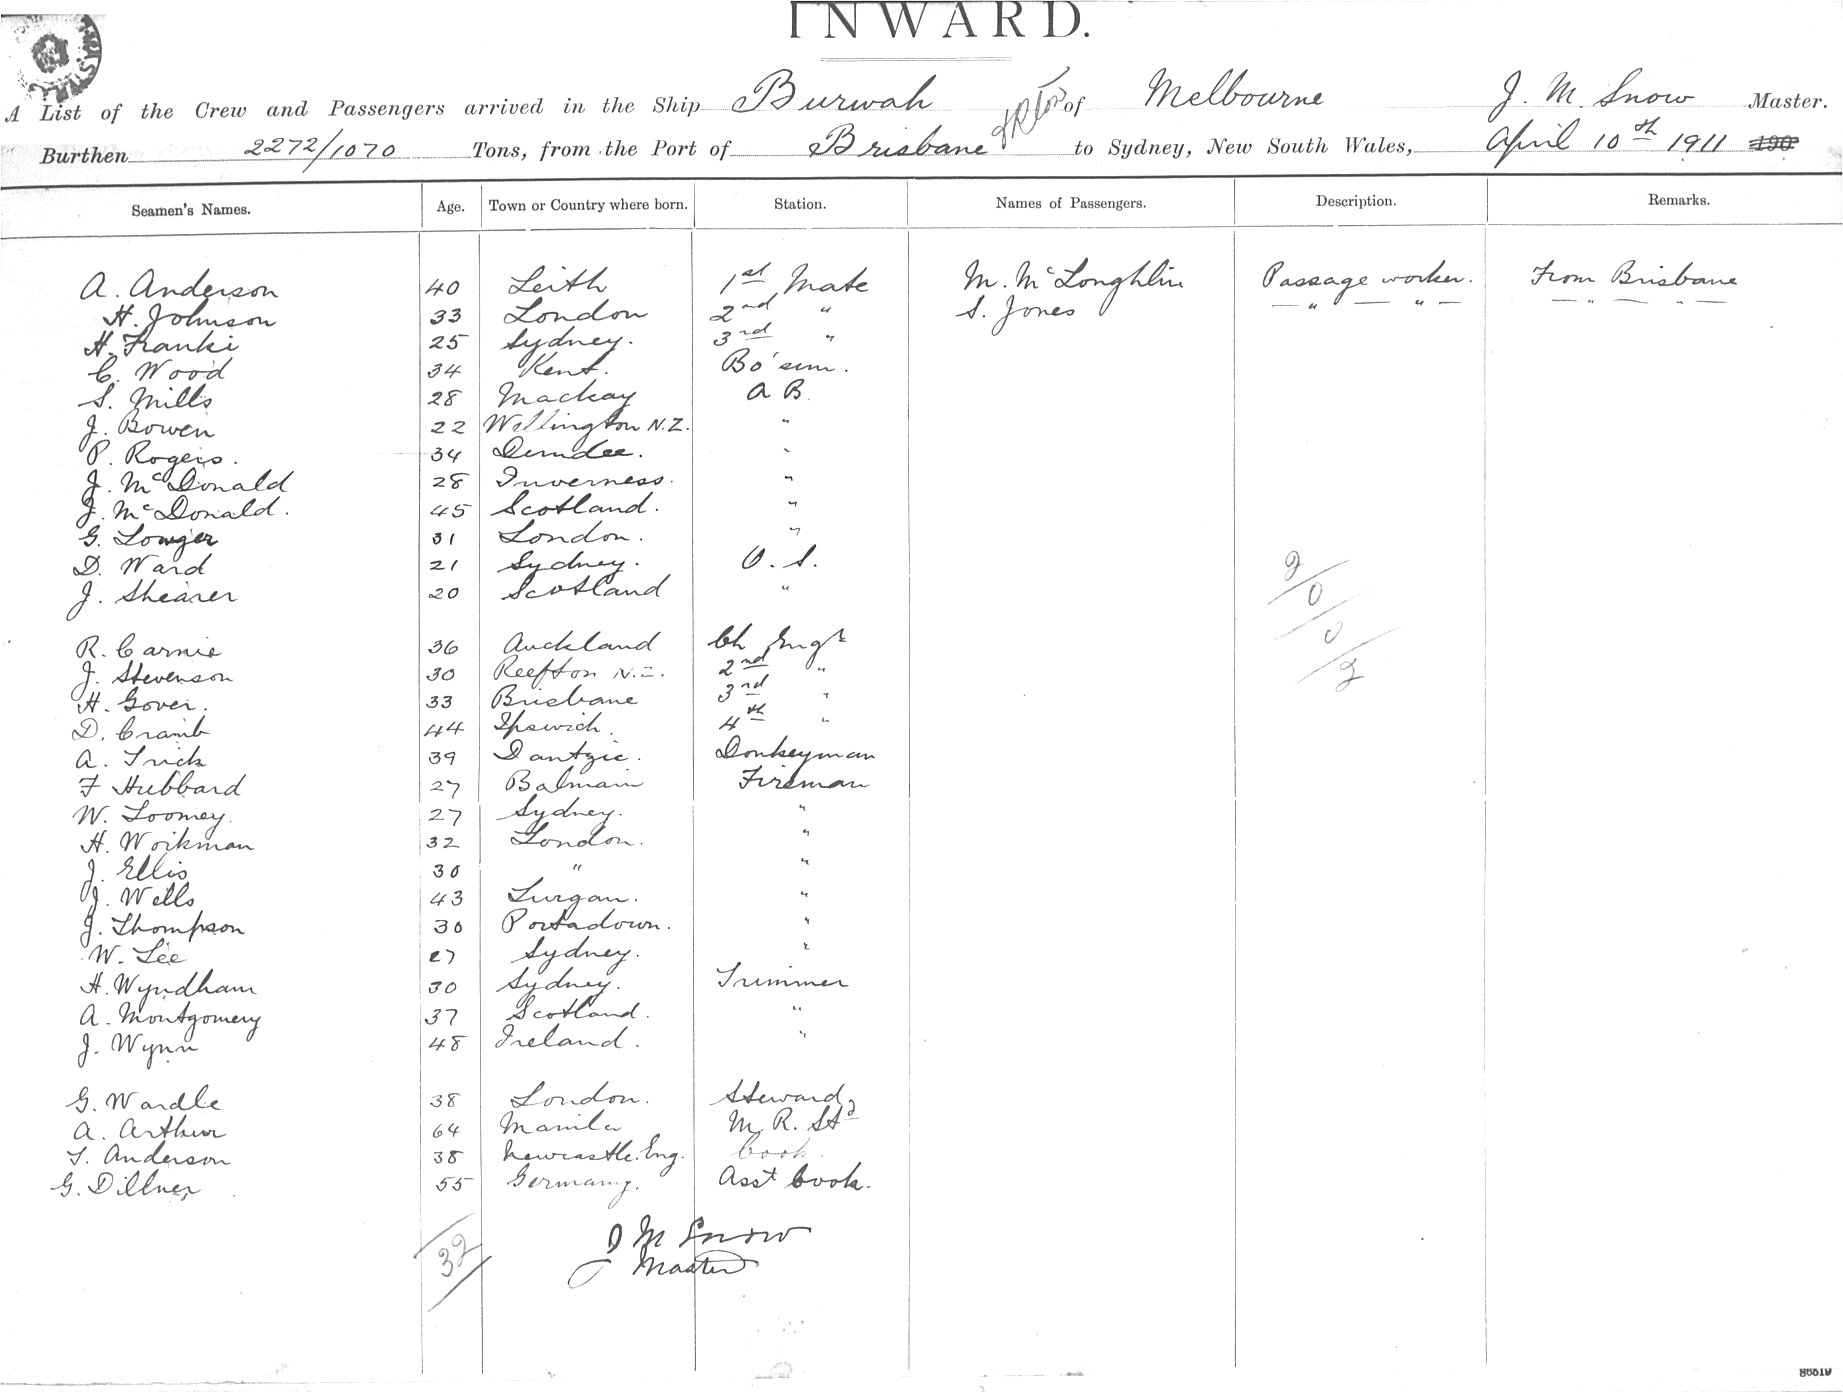 INWARD.
A List of the Crew and Passengers arrived in the Ship Burwah of Melbourne J. M. Snow Master.
Burthen 2272/1070 Tons, from the Port of Brisbane to Sydney, New South Wales, April 10th 1911 190
Seamen's Names. Age. Town or Country where born. Station. Names of Passengers. Description. Remarks.
A. Anderson 40 Leith 1st Mate M. McLoughlin Passage worker. From Brisbane
H. Johnson 33 London 2nd " S. Jones — " — " — — " — " —
H. Franki 25 Sydney. 3rd "
C. Wood 34 Kent. Bo'sun.
S. Mills 28 Mackay A B.
J. Bowen 22 Wellington N.Z. "
P. Rogers. 34 Dundee. "
J. McDonald 28 Inverness. "
J. McDonald. 45 Scotland. "
G. 31 London. "
D. Ward 21 Sydney. O. S.
J. Shearer 20 Scotland "
R. Carnie 36 Auckland Ch Engr
J. Stevenson 30 Reefton N.Z. 2nd "
H. Gover. 33 Brisbane 3rd "
D. Cramb 44 Ipswich. 4th "
A. Trick 39 Dantzic. Donkeyman
F Hubbard 27 Balmain Fireman
W. Toomey. 27 Sydney. "
H. Workman 32 London. "
J. Ellis 30 " "
J. Wells 43 Lurgan. "
J. Thompson 30 Portadown. "
W. Lee 27 Sydney. "
H. Wyndham 30 Sydney. Trimmer
A. Montgomery 37 Scotland. "
J. Wynn 48 Ireland. "
G. Wardle 38 London. Steward
A. Arthur 64 Manila M. R. Std
T. Anderson 38 Newcastle. Eng. Cook.
G. Dillner 55 Germany. Asst Cook.
2/0/0/2
32
J M Snow
Master